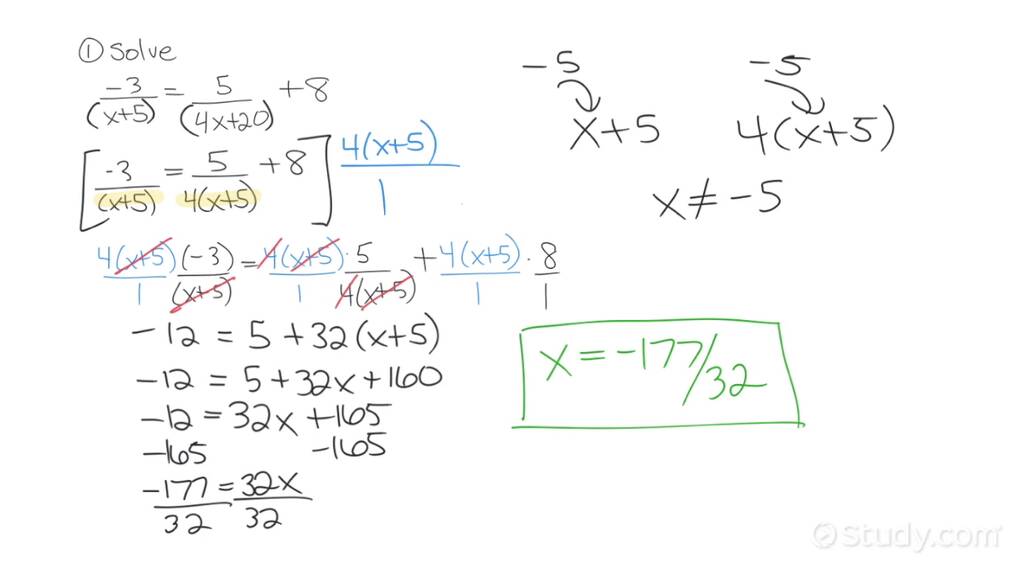 ① Solve
-3/(x+5) = 5/(4x+20) + 8
[-3/(x+5) = 5/4(x+5) + 8] 4(x+5)/1
4(x+5)/1 (-3)/(x+5) = 4(x+5)/1 · 5/4(x+5) + 4(x+5)/1 · 8/1
-12 = 5 + 32(x+5)
-12 = 5 + 32x + 160
-12 = 32x + 165
-165 -165
-177/32 = 32x/32
-5 -5
x+5 4(x+5)
x ≠ -5
x = -177/32
Study.com